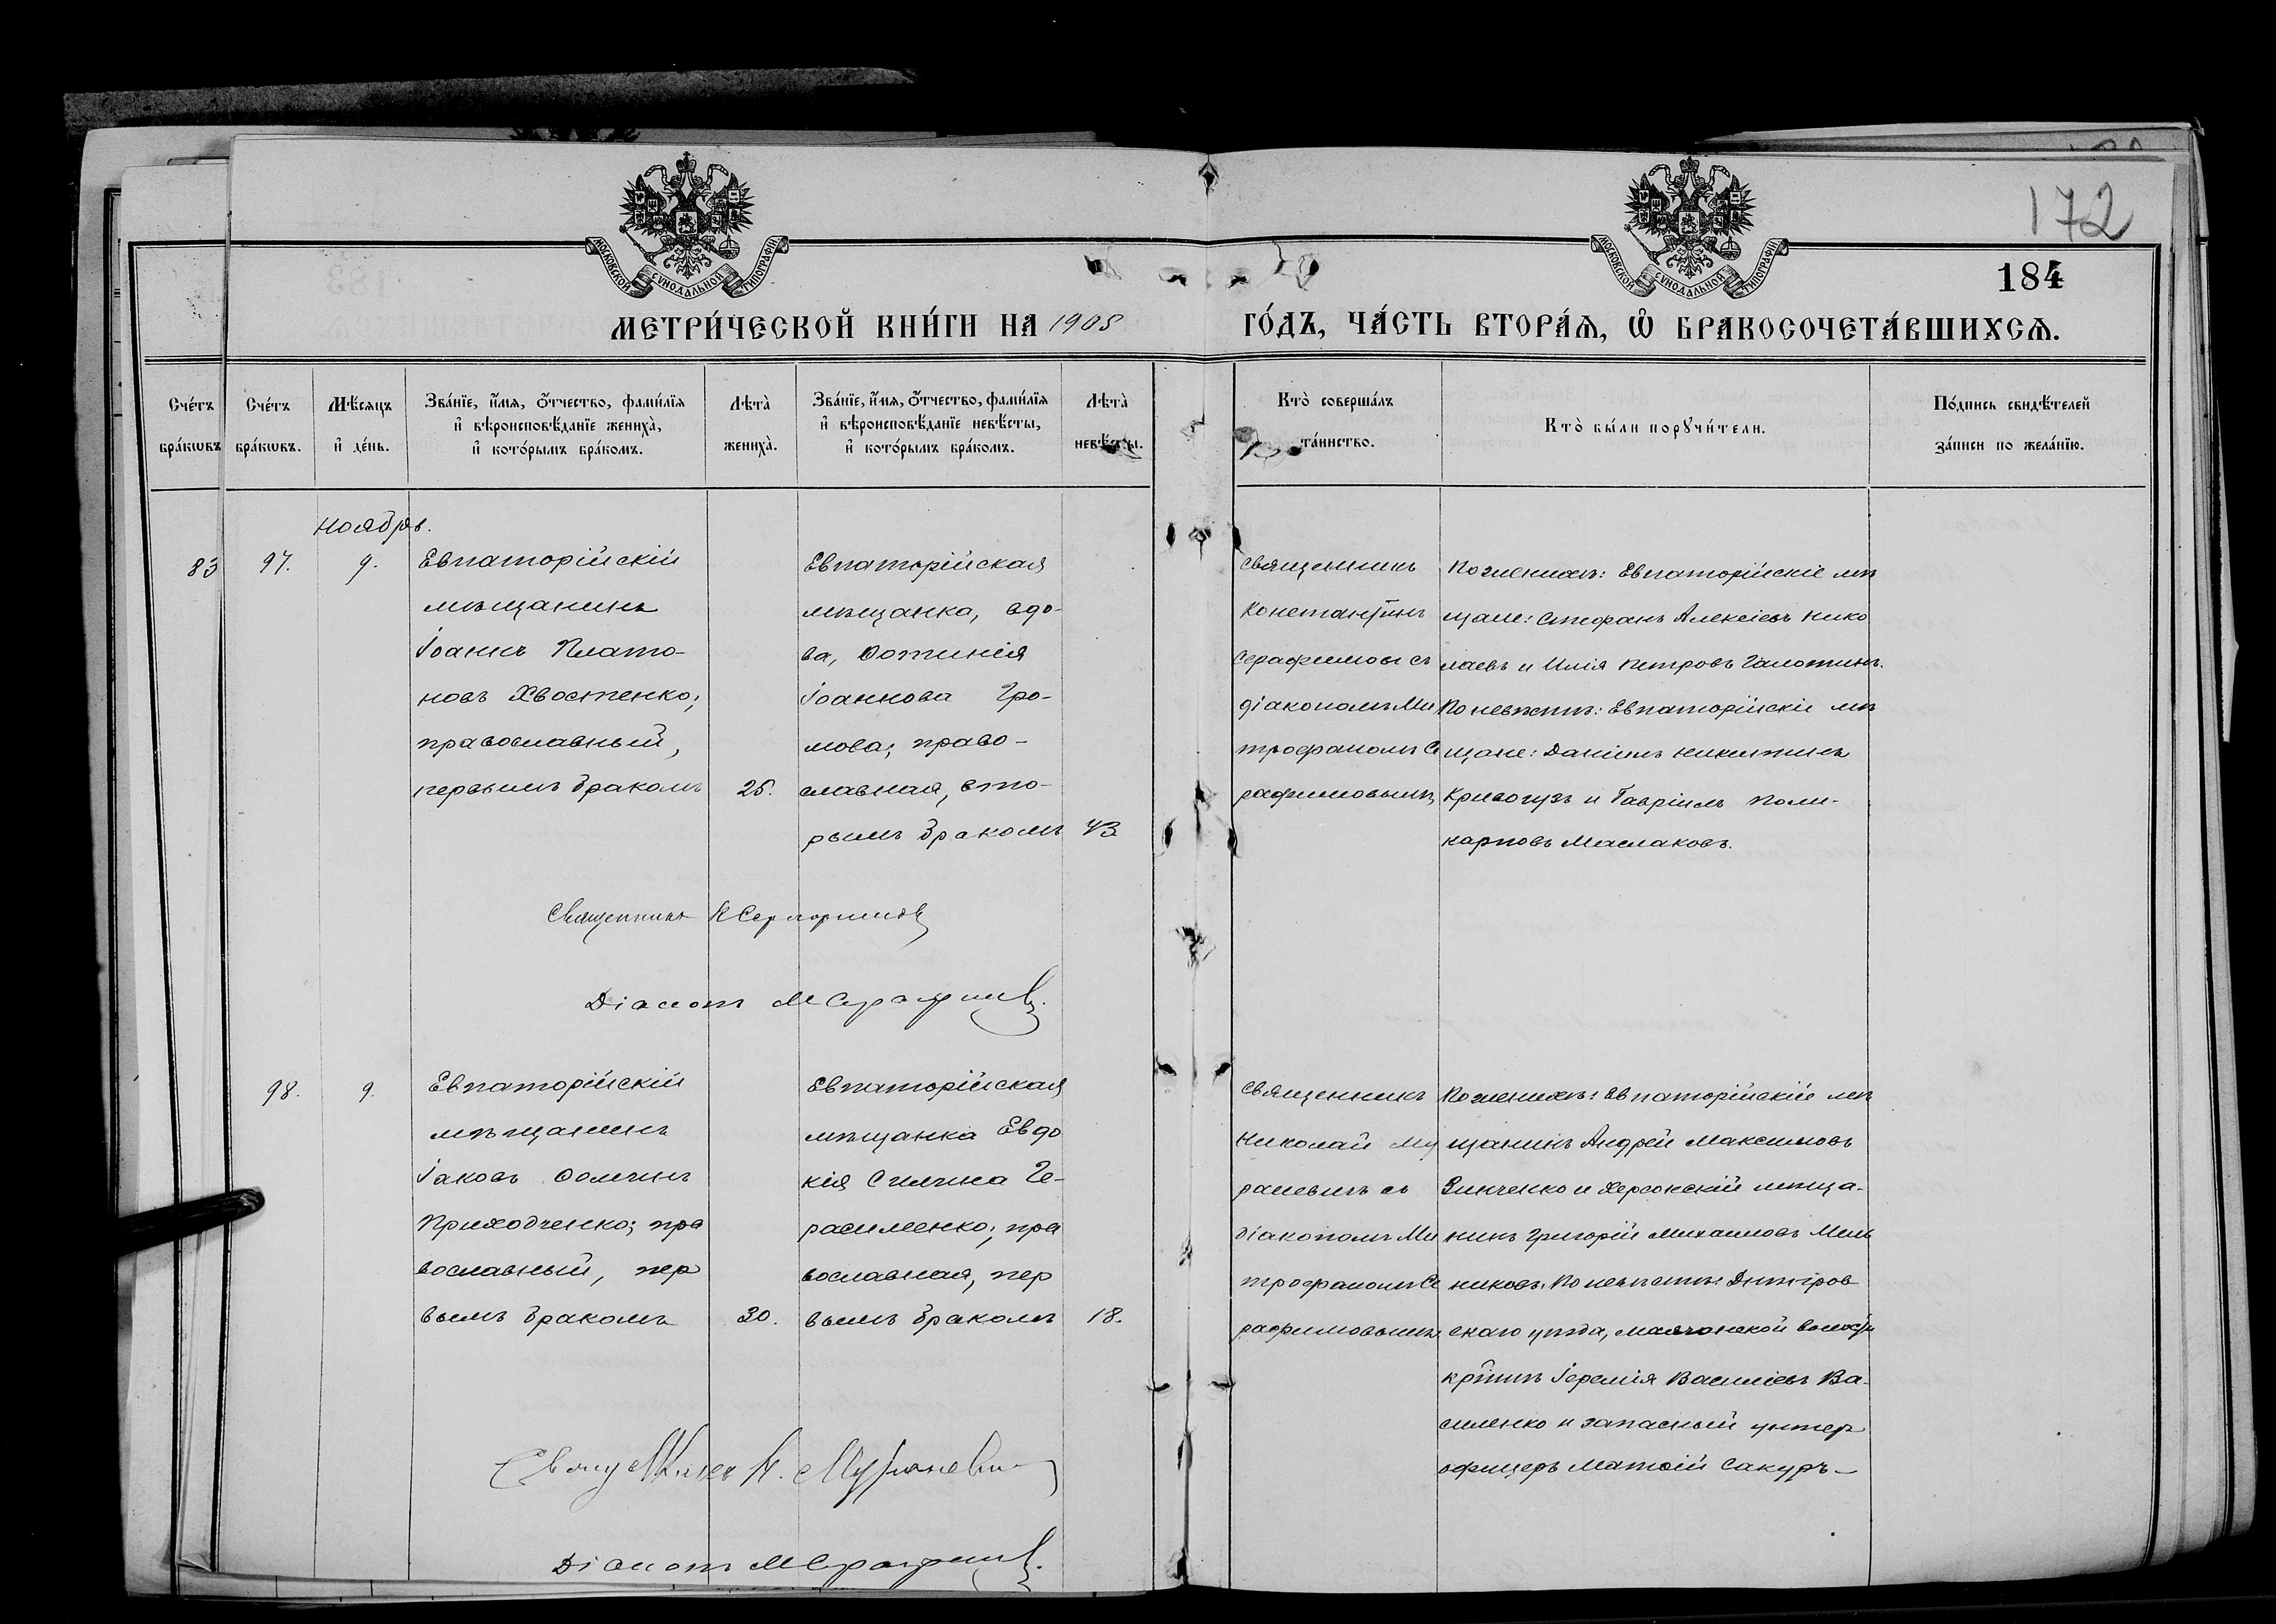 172
184
МОСКОВСКОЙ СУНОДАЛЬНОЙ ТИПОГРАФІИ
МОСКОВСКОЙ СУНОДАЛЬНОЙ ТИПОГРАФІИ
МЕТРИ́ЧЕСКОЙ КНИ́ГИ НА 1905 ГО́ДЪ, ЧА́СТЬ ВТОРА́Ѧ, Ѿ БРАКОСОЧЕТА́ВШИХСѦ.
Сче́тъ бра́кѡвъ
Сче́тъ бра́кѡвъ.
Мѣ́сяцъ и҆ де́нь.
Зва́нїе, и҆́мѧ, ѻ҆́тчество, фами́лїѧ
и҆ вѣроисповѣ́данїе жениха̀,
и҆ кото́рымъ бра́комъ.
Лѣта̀ жениха̀.
Зва́нїе, и҆́мѧ, ѻ҆́тчество, фами́лїѧ
и҆ вѣроисповѣ́данїе невѣ́сты,
и҆ кото́рымъ бра́комъ.
Лѣта̀ невѣ́сты.
Кто̀ соверша́лъ
та́инство.
Кто̀ бы́ли порꙋчи́тели.
По́дпись свидѣ́телей
за́писи по жела́нїю.
Ноябрь.
83
97.
9.
Евпаторійскій
мѣщанинъ
Іоаннъ Плато-
новъ Хвостенко;
православный,
первымъ бракомъ
25.
Евпаторійская
мѣщанка, вдо-
ва, Фотинія
Іоаннова Гро-
мова; право-
славная, вто-
рымъ бракомъ
43
Священникъ
Константинъ
Серафимовъ съ
діакономъ Ми
трофаномъ Се
рафимовымъ
По женихѣ: Евпаторійскіе мѣ
щане: Стефанъ Алексіевъ Нико
лаевъ и Илія Петровъ Галоткинъ.
По невѣстѣ: Евпаторійскіе мѣ
щане: Даніилъ Никитинъ
Кривогузъ и Гавріилъ Поли-
карповъ Маслаковъ.
Священникъ К Серафимовъ
Діаконъ М Серафимовъ.
98.
9.
Евпаторійскій
мѣщанинъ
Іаковъ Фоминъ
Приходченко; пра
вославный, пер
вымъ бракомъ
30.
Евпаторійская
мѣщанка Евдо
кія Силина Ге-
расименко; пра
вославная, пер
вымъ бракомъ
18.
Священникъ
Николай Му
раневичъ съ
діакономъ Ми
трофаномъ Се
рафимовымъ
По женихѣ: Евпаторійскій мѣ
щанинъ Андрей Максимовъ
Зинченко и Херсонскій мѣща-
нинъ Григорій Михаиловъ Мель
никовъ. По невѣстѣ: Днѣпров
скаго уѣзда, Маячонской волости
кр҃нинъ Іеремія Василіевъ Ва-
силенко и запасный унтер
офицеръ Матѳій Сакуръ-
Священникъ Н. Мураневичъ
Діаконъ М Серафимовъ.